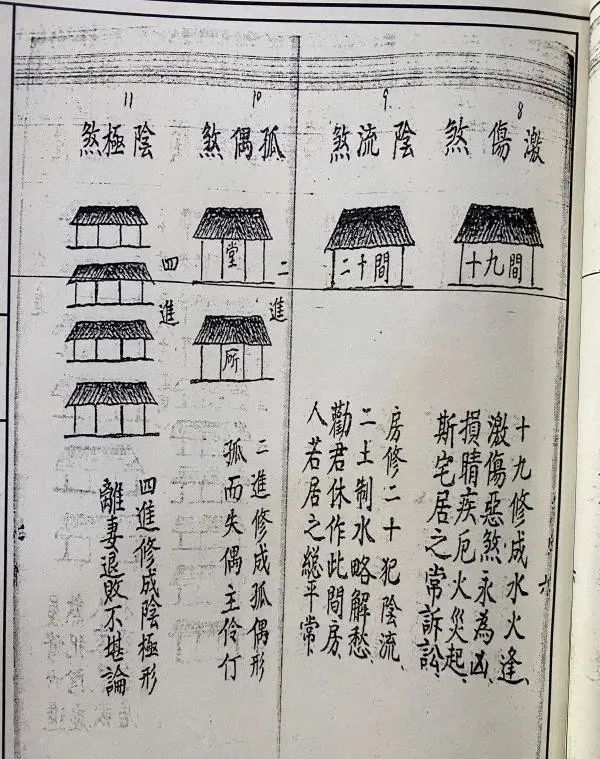 8
激傷煞
十九間
十九修成水火逢、
激傷惡煞永為凶、
損睛疾厄火災起、
斯宅居之常訴訟、
9
陰流煞
二十間
房修二十犯陰流、
二土制水略解愁、
勸君休作此間房、
人若居之総平常、
10
孤偶煞
二進
堂
所
二進修成孤偶形
孤而失偶主伶仃
11
陰極煞
四進
四進修成陰極形
離妻退敗不堪論